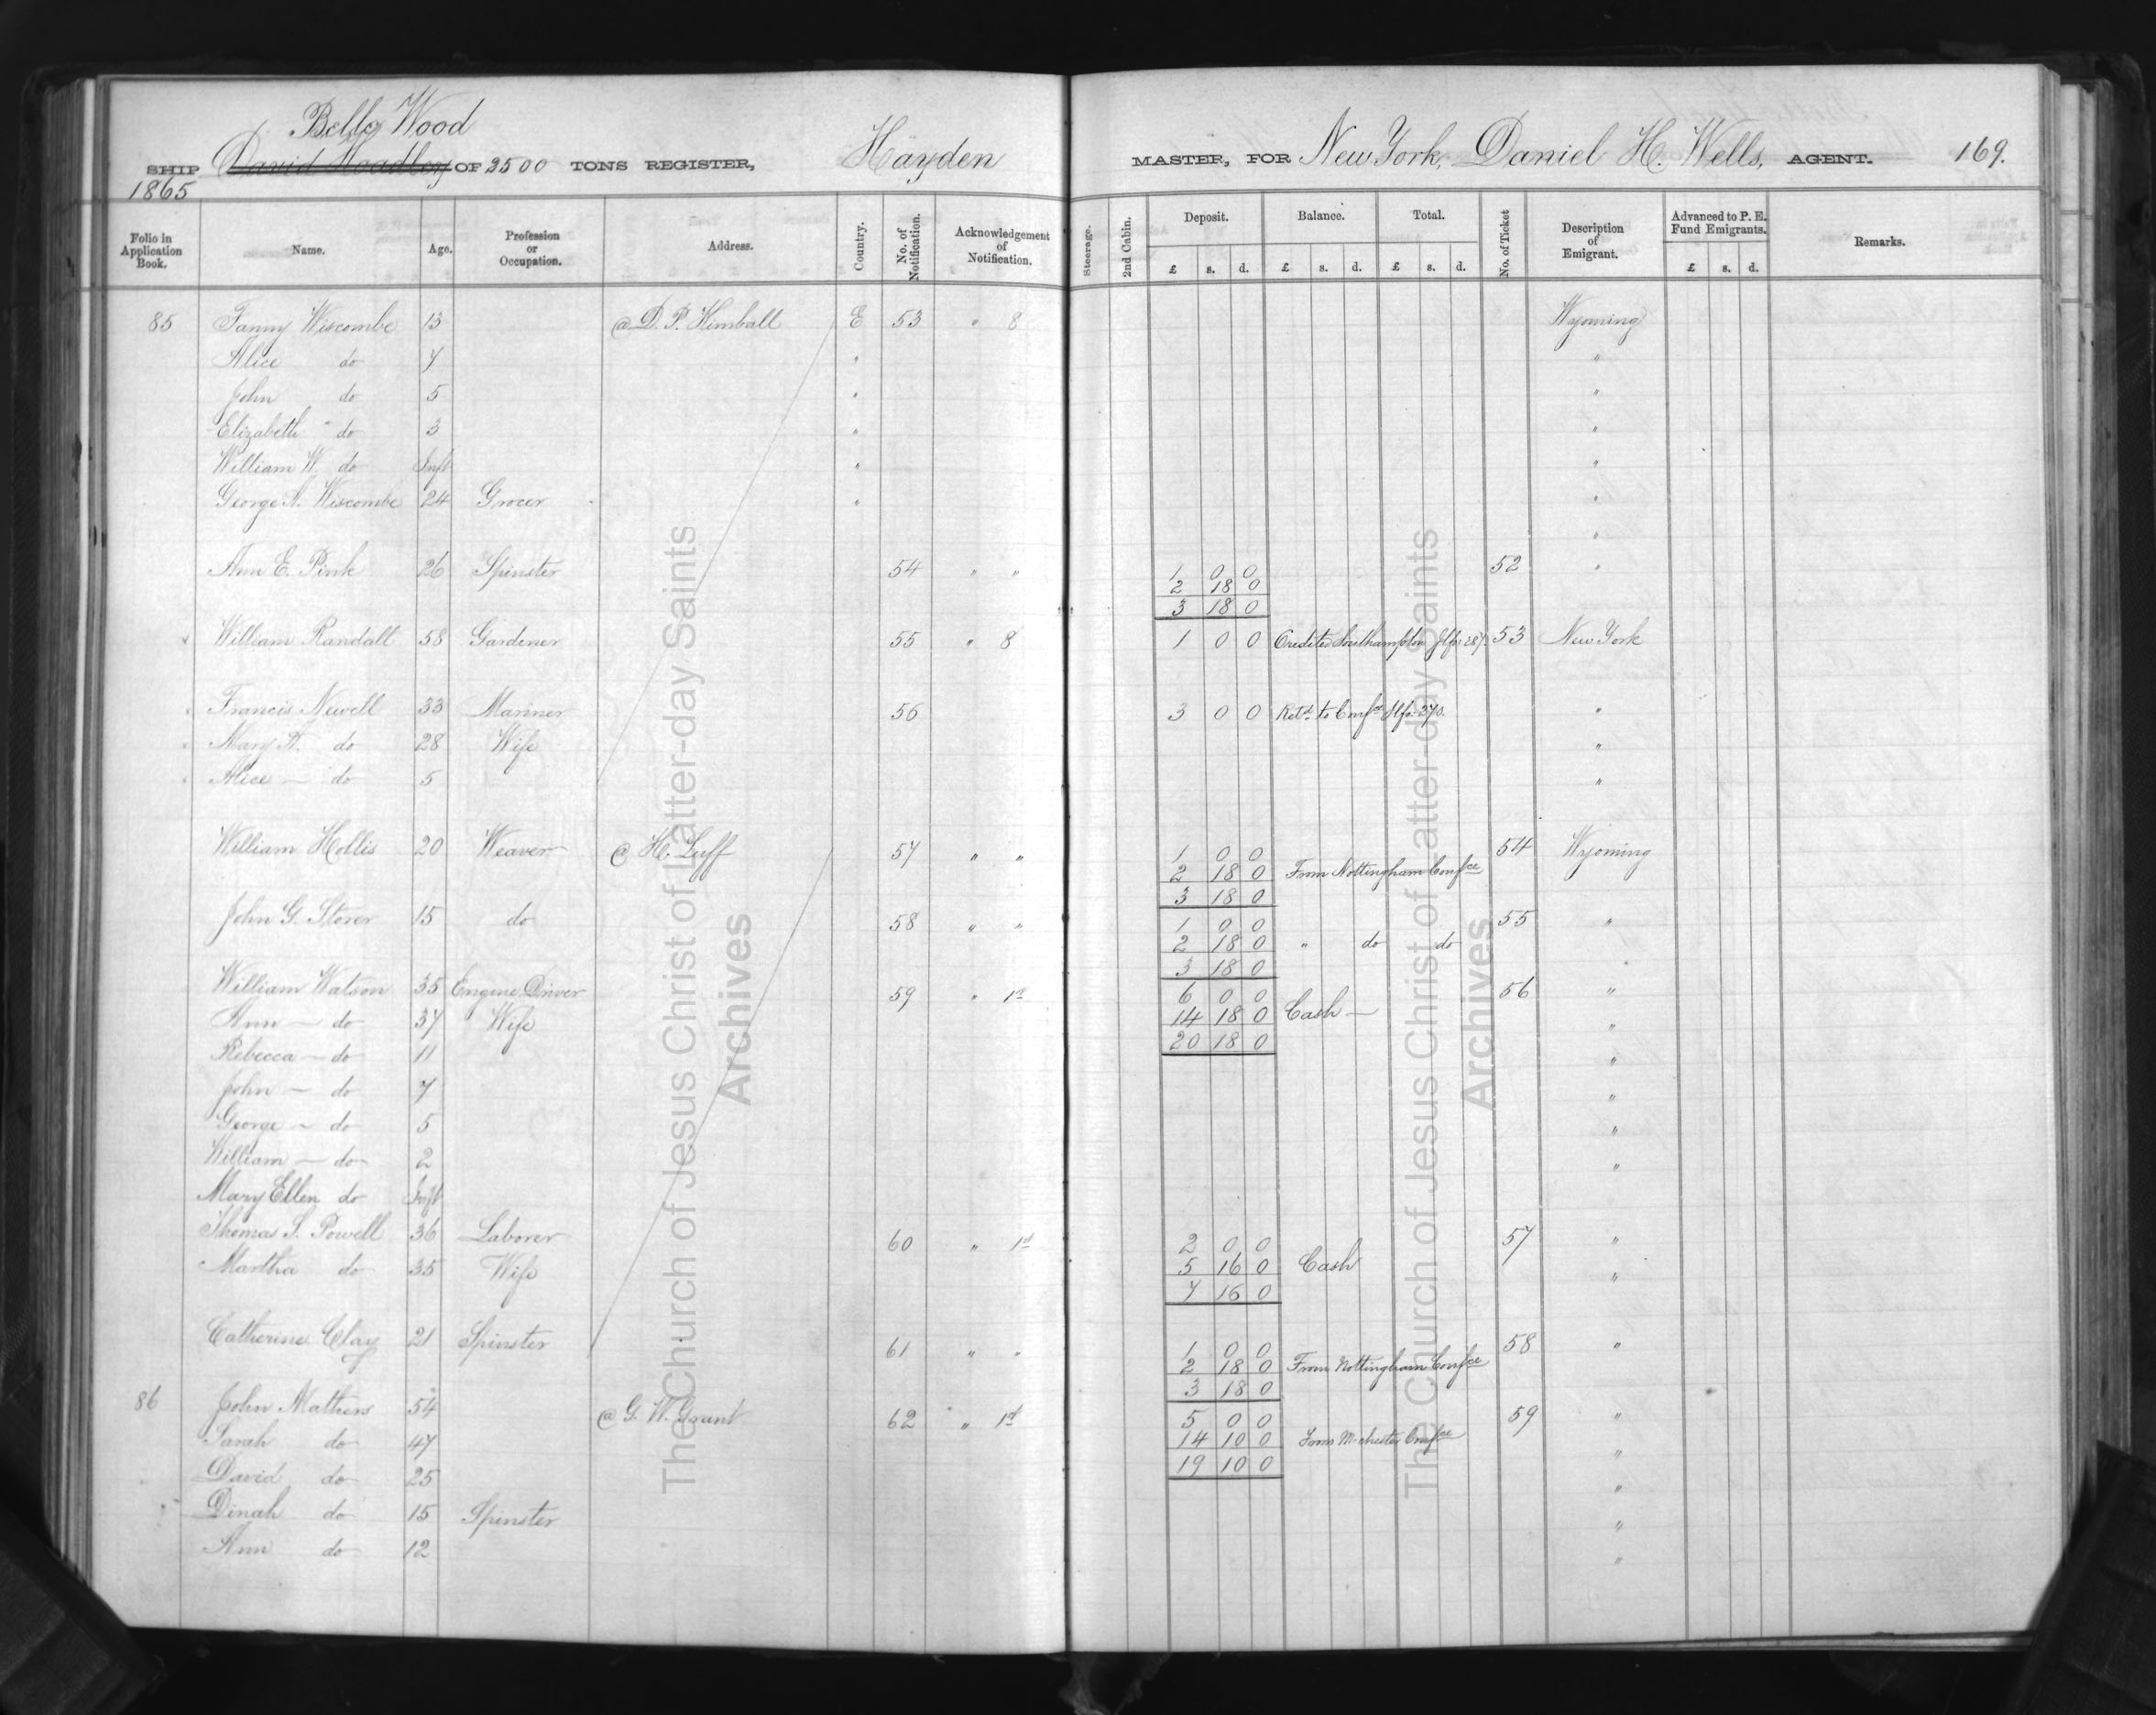 Belle Wood
SHIP David Hoadley OF 2500 TONS REGISTER, Hayden MASTER, FOR New York, Daniel H. Wells, AGENT. 169.
1865
Folio in Application Book. Name. Age. Profession or Occupation. Address. Country. No. of Notification. Acknowledgement of Notification. Steerage. 2nd Cabin. Deposit. Balance. Total. No. of Ticket Description of Emigrant. Advanced to P. E. Fund Emigrants. Remarks.
£ s. d. £ s. d. £ s. d. £ s. d.
85 Fanny Wiscombe 13 @ D. P. Kimball E 53 " 8 Wyoming
Alice do 7 " "
John do 5 " "
Elizabeth do 3 " "
William W. do Inft " "
George A. Wiscombe 24 Grocer " "
"
Ann E. Pink 26 Spinster 54 " " 1 0 0 52 "
2 18 0
3 18 0
x William Randall 58 Gardener 55 " 8 1 0 0 Credited Southampton Jlfo: 287 53 New York
Francis Newell 33 Mariner 56 3 0 0 Retd. to Confce Jlfo: 370. "
Mary A. do 28 Wife "
Alice — do 5 "
William Hollis 20 Weaver @ H. Luff 57 " " 1 0 0 54 Wyoming
2 18 0 From Nottingham Confce
3 18 0
John G. Storer 15 do 58 " " 1 0 0 55 "
2 18 0 " do do
3 18 0 "
William Watson 35 Engine Driver 59 " 1st 6 0 0 56 "
Ann — do 37 Wife 14 18 0 Cash — "
Rebecca — do 11 20 18 0 "
John — do 7 "
George — do 5 "
William — do 2 "
Mary Ellen do Inft
Thomas S. Powell 36 Laborer 60 " 1st 2 0 0 57 "
Martha do 35 Wife 5 16 0 Cash "
7 16 0
Catherine Clay 21 Spinster 61 " " 1 0 0 58 "
2 18 0 From Nottingham Confce
3 18 0
86 John Mathers 54 @ G. W. Grant 62 " 1st 5 0 0 59 "
Sarah do 47 14 10 0 From M.chester Confce "
David do 25 19 10 0 "
Dinah do 15 Spinster "
Ann do 12 "
The Church of Jesus Christ of Latter-day Saints
Archives
The Church of Jesus Christ of Latter-day Saints
Archives